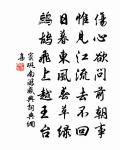 傷心欲問前朝事
惟見江流去不回
日暮東風春草綠
鷓鴣飛上越王臺
竇鞏南游感興詞典網
集